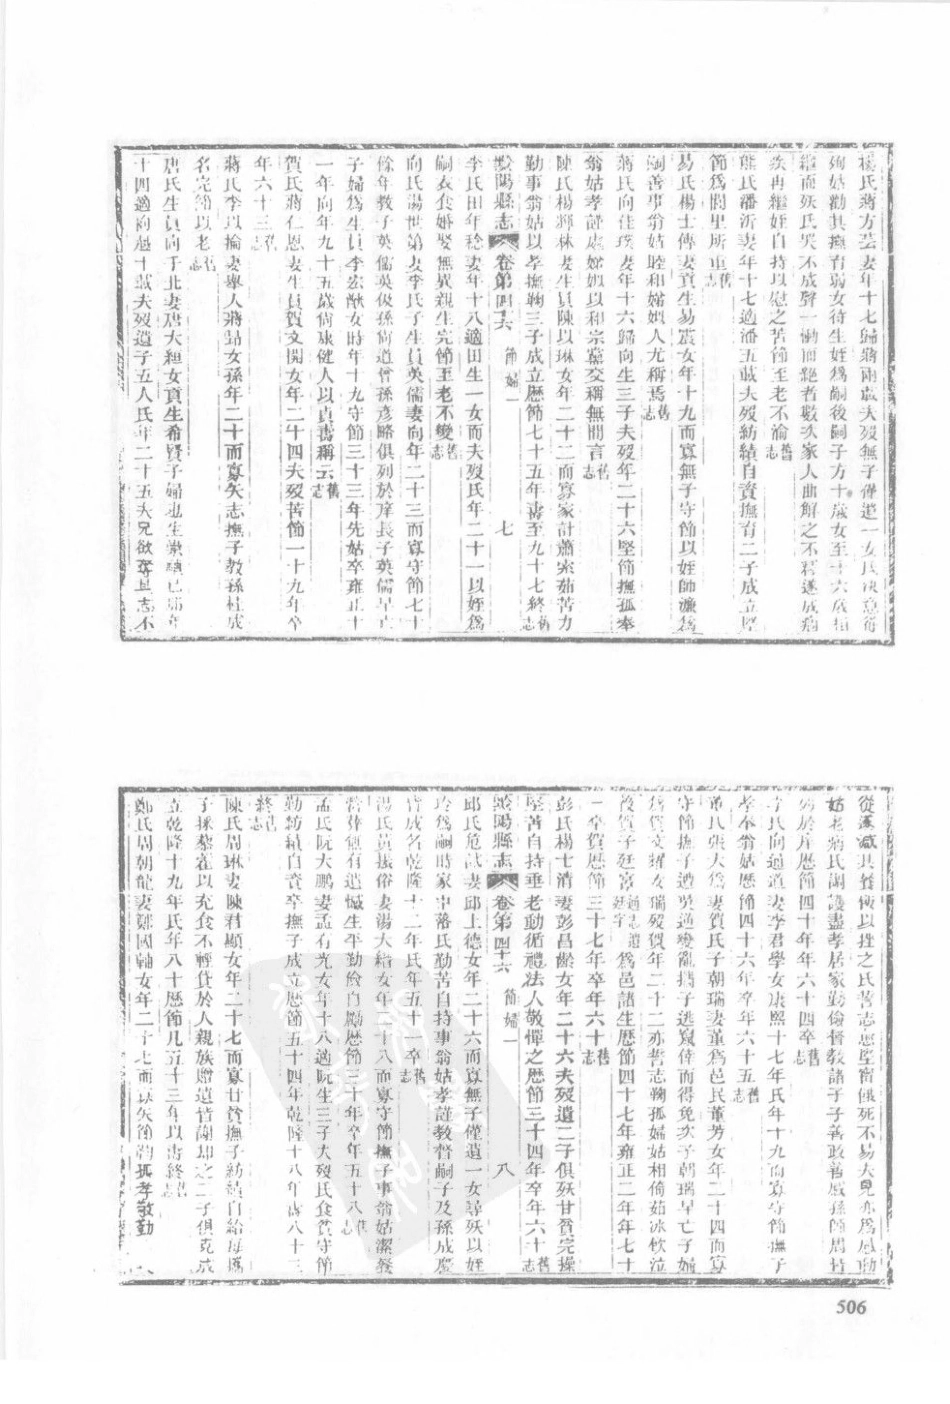 楊氏蔣方芸妻年十七歸蔣兩歲夫歿無子僅遺一女氏決意
殉姑勸其撫育弱女待生姪爲嗣後嗣子方十歲女至十六歲相
繼而殀氏哭不成聲一慟而絕者數次家人曲解之不釋遂成病
族再繼姪自持以慰之苦節至老不渝舊志
熊氏潘沂妻年十七適潘五載夫歿紡績自資撫育二子成立堅
節爲閭里所重舊志
易氏楊士傳妻貢生易震女年十九而寡無子守節以姪師濂爲
嗣善事翁姑睦和婦姒人尤稱焉舊志
蔣氏向佳璞妻年十六歸向生三子夫歿年二十六堅節撫孤奉
翁姑孝謹處娣姒以和宗黨交稱無間言舊志
陳氏楊鄉林妻生員陳以琳女年二十二而寡家計蕭索茹苦力
勤事翁姑以孝撫鞠三子成立歷節七十五年壽至九十七終舊志
漵陽縣志 卷第四十六 節婦一 七
李氏田年稔妻年十八適田生一女而夫歿氏年二十一以姪爲
嗣衣食婚娶無異親生完節至老不變舊志
向氏湯世第妻李氏子生員英儒妻向年二十三而寡守節七十
餘年教子英儒英伋孫衍道曾孫彥略俱列於庠長子英儒早亡
子婦爲生員李宏猷女時年十九守節三十三年先姑卒雍正十
一年向年九十五歲尙康健人以貞壽稱云舊志
賀氏蔣仁恩妻生員賀文開女年二十四夫歿苦節一十九年卒
年六十三舊志
蔣氏李以掄妻舉人蔣勗女孫年二十而寡矢志撫子教孫杜成
名完節以老舊志
唐氏生員向于北妻唐大紐女貢生希賢子婦也生崇禎己
十四適向越十載夫歿遺子五人氏年二十五夫兄欲奪其志不
從遂減其餐飯以挫之氏苦志愈堅甯餓死不易夫兄亦爲感動
姑老病氏調護盡孝居家勤儉督教諸子子善政善感孫師周
列於庠歷節四十年年六十四卒舊志
李氏向適道妻李君學女康熙十七年氏年十九而寡守節撫子
孝奉翁姑歷節四十六年卒年六十五舊志
董氏張大爲妻賀氏子朝瑞妻董爲邑民董芳女年二十四而寡
守節撫子遭吳逆變亂攜子逃竄倖而得免次子朝瑞早亡子婦
爲賀文燿女瑞歿賀年二十二亦誓志鞠孤婦姑相倚茹冰飲泣
後賀子廷富通志禮廷字爲邑諸生歷節四十七年雍正二年年七十
一卒賀歷節三十七年卒年六十舊志
彭氏楊士清妻彭昌齡女年二十六夫歿遺二子俱殀甘貧完操
堅苦自持垂老動循禮法人敬憚之歷節三十四年卒年六十舊志
漵陽縣志 卷第四十六 節婦一 八
邱氏危試妻邱上德女年二十六而寡無子僅遺一女尋殀以姪
玲爲嗣時家中落氏勤苦自持事翁姑孝謹教督嗣子及孫成慶
皆成名乾隆十二年氏年五十一卒舊志
湯氏黃振俗妻湯大給女年十八而寡守節撫子事翁姑潔養
營葬無有遺憾生平勤儉自勵歷節三十年卒年五十八舊志
孟氏阮大鵬妻孟有光女年十八適阮生三子夫歿氏食貧守節
勤紡績自資卒撫子成立歷節五十四年乾隆十八年壽八十三
終舊志
陳氏周琳妻陳君顯女年二十七而寡甘貧撫子紡績自給每攜
子採藜藿以充食不輕貸於人親族贈遺皆謝却之二子俱克成
立乾隆十九年氏年八十歷節凡五十三年以壽終舊志
鄭氏周朝龍妻鄭國輔女年二十七而以矢節撫孤孝敬勤
506